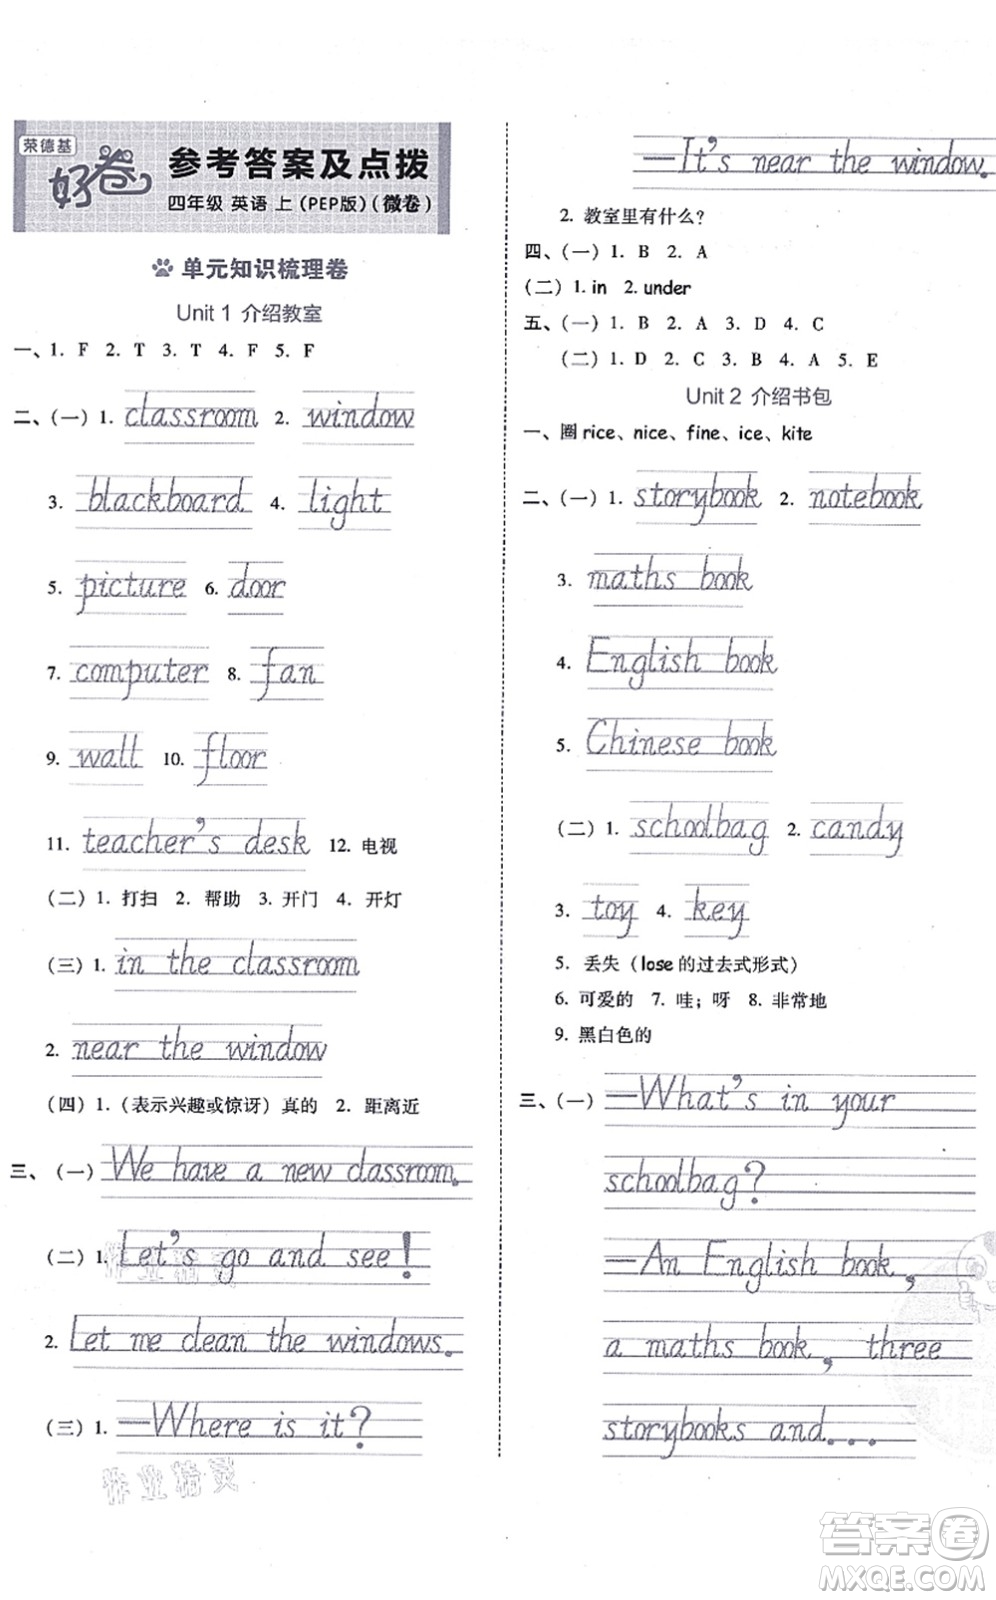 荣德基
好卷
参考答案及点拨
四年级 英语 上(PEP版)(微卷)
单元知识梳理卷
Unit 1 介绍教室
一、1. F 2. T 3. T 4. F 5. F
二、(一) 1. classroom 2. window
3. blackboard 4. light
5. picture 6. door
7. computer 8. fan
9. wall 10. floor
11. teacher's desk 12. 电视
(二) 1. 打扫 2. 帮助 3. 开门 4. 开灯
(三) 1. in the classroom
2. near the window
(四) 1. (表示兴趣或惊讶) 真的 2. 距离近
三、(一) We have a new classroom.
(二) 1. Let's go and see!
2. Let me clean the windows.
(三) 1. —Where is it?
作业精灵
—It's near the window.
2. 教室里有什么?
四、(一) 1. B 2. A
(二) 1. in 2. under
五、(一) 1. B 2. A 3. D 4. C
(二) 1. D 2. C 3. B 4. A 5. E
Unit 2 介绍书包
一、圈 rice、nice、fine、ice、kite
二、(一) 1. storybook 2. notebook
3. maths book
4. English book
5. Chinese book
(二) 1. schoolbag 2. candy
3. toy 4. key
5. 丢失 (lose 的过去式形式)
6. 可爱的 7. 哇；呀 8. 非常地
9. 黑白色的
三、(一) —What's in your
schoolbag?
—An English book,
a maths book, three
storybooks and...
答案卷
MXQE.COM